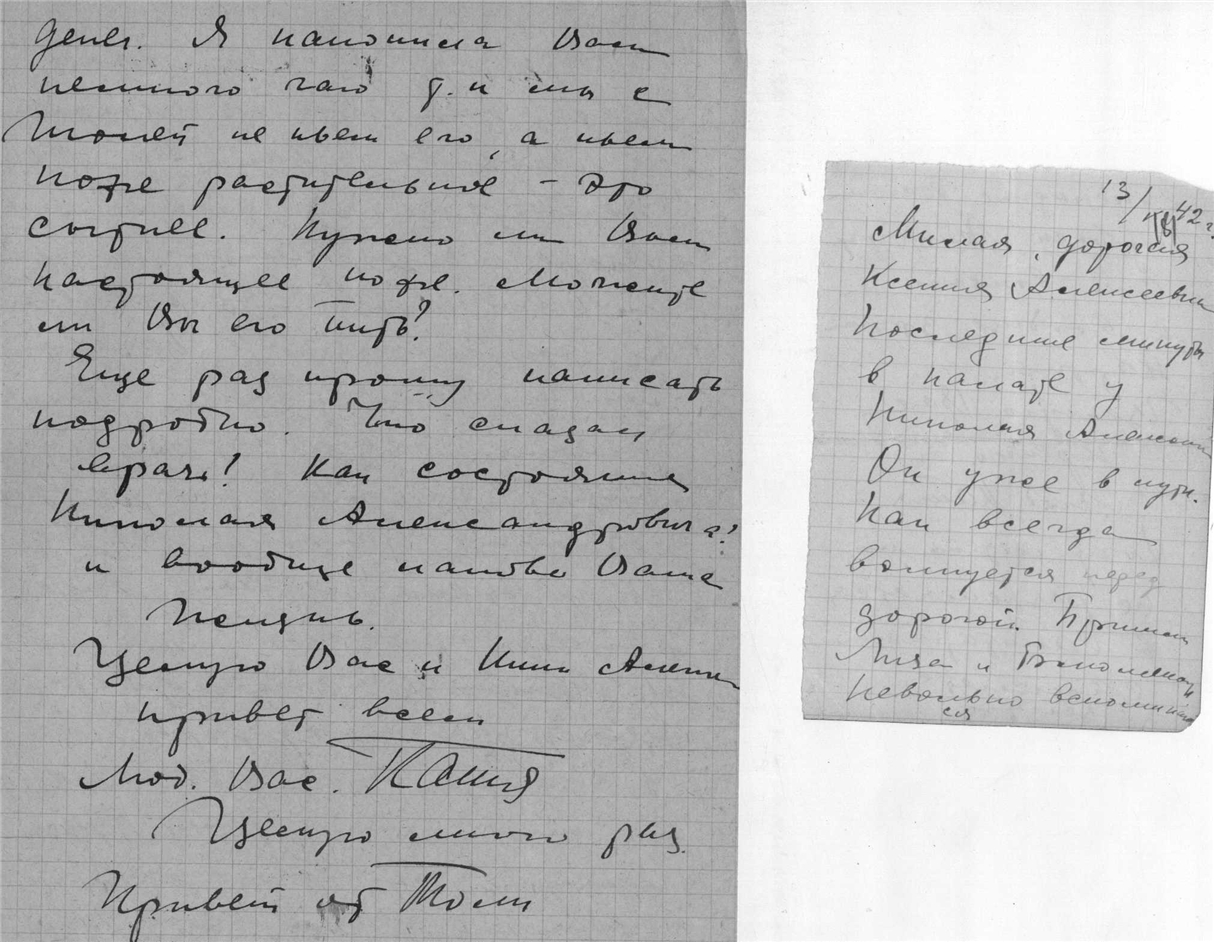 денег. Я накопила Вам
немного чаю т.к мы с
Толей не пьем его, а пьем
кофе растительное – это
сытнее. Нужно ли Вам
настоящее кофе. Можете
ли Вы его пить?
Еще раз прошу написать
подробно. Что сказал
врач? Как состояние
Николая Александровича?
и вообще какова Ваша
жизнь.
Целую Вас и Нин
привет всем
Люб. Вас.
Целую много раз.
Привет от Толи
13/ 42 г.
Милая, дорогая
Ксения Алексеевна
Последние минуты
в палате у
Николая
Он уже в пути.
Как всегда
волнуется перед
дорогой.
Лиза и
невольно вспомина
ся